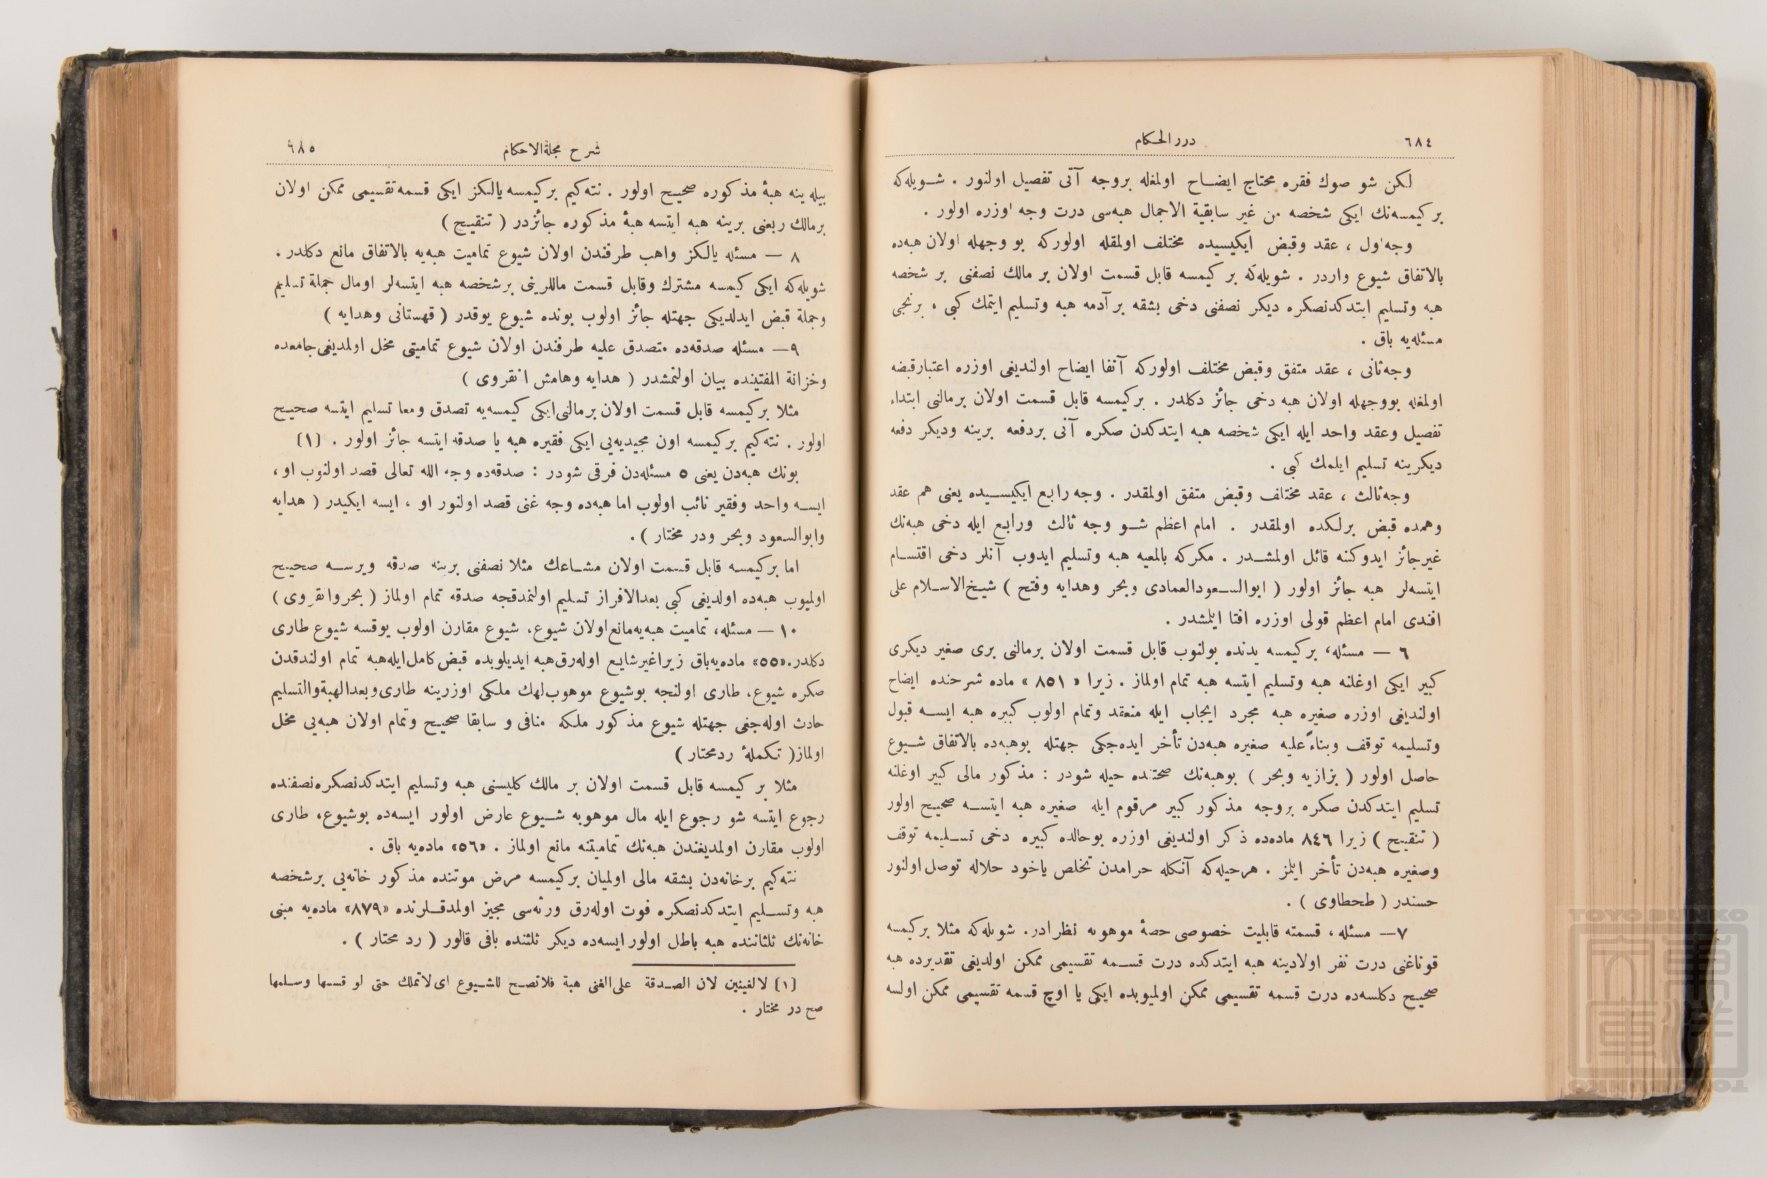 ٦٨٤
درر الحكام
لكن شو صوك فقره محتاج ايضاح اولمغله بروجه آتى تفصيل اولنور . شويله‌كه
بر كيمسه‌نك ايكى شخصه من غير سابقية الاجمال هبه‌سى درت وجه اوزره اولور .
وجه اول ، عقد وقبض ايكيسيده مختلف اولمقله اولوركه بو وجهله اولان هبه‌ده
بالاتفاق شيوع واردر . شويله‌كه بر كيمسه قابل قسمت اولان بر مالك نصفنى بر شخصه
هبه وتسليم ايتدكدنصكره ديكر نصفنى دخى بشقه بر آدمه هبه وتسليم ايتمك كبى ، برنجى
مسئله‌يه باق .
وجه ثانى ، عقد متفق وقبض مختلف اولوركه آنفا ايضاح اولنديغى اوزره اعتبار قبضه
اولمغله بووجهله اولان هبه دخى جائز دكلدر . بركيمسه قابل قسمت اولان برمالنى ابتداء
تفصيل وعقد واحد ايله ايكى شخصه هبه ايتدكدن صكره آنى بردفعه برينه وديكر دفعه
ديكرينه تسليم ايلمك كبى .
وجه ثالث ، عقد مختلف وقبض متفق اولمقدر . وجه رابع ايكيسيده يعنى هم عقد
وهمده قبض برلكده اولمقدر . امام اعظم شو وجه ثالث ورابع ايله دخى هبه‌نك
غيرجائز ايدوكنه قائل اولمشدر . مكركه بالمعيه هبه وتسليم ايدوب آنلر دخى اقتسام
ايتسه‌لر هبه جائز اولور ( ابوالسعودالعمادى وبحر وهدايه وفتح ) شيخ‌الاسلام على
افندى امام اعظم قولى اوزره افتا ايلمشدر .
٦ — مسئله، بركيمسه يدنده بولنوب قابل قسمت اولان برمالنى برى صغير ديكرى
كبير ايكى اوغلنه هبه وتسليم ايتسه هبه تمام اولماز . زيرا « ٨٥١ » ماده شرحنده ايضاح
اولنديغى اوزره صغيره هبه مجرد ايجاب ايله منعقد وتمام اولوب كبيره هبه ايسه قبول
وتسليمه توقف وبناءً عليه صغيره هبه‌دن تأخر ايده‌جكى جهتله بوهبه‌ده بالاتفاق شيوع
حاصل اولور ( بزازيه وبحر ) بوهبه‌نك صحتنده حيله شودر : مذكور مالى كبير اوغلنه
تسليم ايتدكدن صكره بروجه مذكور كبير مرقوم ايله صغيره هبه ايتسه صحيح اولور
( تنقيح ) زيرا ٨٤٦ ماده‌ده ذكر اولنديغى اوزره بوحالده كبيره دخى تسليمه توقف
وصغيره هبه‌دن تأخر ايلمز . هرحيله‌كه آنكله حرامدن تخلص ياخود حلاله توصل اولنور
حسندر ( طحطاوى ) .
٧— مسئله ، قسمته قابليت خصوصى حصهٔ موهوبه نظرادر. شويله‌كه مثلا بركيمسه
قوناغنى درت نفر اولادينه هبه ايتدكده درت قسمه تقسيمى ممكن اولديغى تقديرده هبه
صحيح دكلسه‌ده درت قسمه تقسيمى ممكن اولميوبده ايكى يا اوچ قسمه تقسيمى ممكن اولسه
شرح مجلة‌الاحكام
٦٨٥
بيله ينه هبهٔ مذكوره صحيح اولور . نته‌كيم بركيمسه يالكز ايكى قسمه تقسيمى ممكن اولان
برمالك ربعنى برينه هبه ايتسه هبهٔ مذكوره جائزدر ( تنقيح )
٨ — مسئله يالكز واهب طرفندن اولان شيوع تماميت هبه‌يه بالاتفاق مانع دكلدر .
شويله‌كه ايكى كيمسه مشترك وقابل قسمت ماللرينى برشخصه هبه ايتسه‌لر اومال جملة تسليم
وجملة قبض ايدلديكى جهتله جائز اولوب بونده شيوع يوقدر ( قهستانى وهدايه )
٩— مسئله صدقه‌ده متصدق عليه طرفندن اولان شيوع تماميتى مخل اولمديغى‌جامعده
وخزانة المفتينده بيان اولنمشدر ( هدايه وهامش انقروى )
مثلا بركيمسه قابل قسمت اولان برمالنى‌ايكى كيمسه‌يه تصدق ومعا تسليم ايتسه صحيح
اولور . نته‌كيم بركيمسه اون مجيديه‌يى ايكى فقيره هبه يا صدقه ايتسه جائز اولور . (١)
بونك هبه‌دن يعنى ٥ مسئله‌دن فرقى شودر : صدقه‌ده وجه الله تعالى قصد اولنوب او ،
ايسه واحد وفقير نائب اولوب اما هبه‌ده وجه غنى قصد اولنور او ، ايسه ايكيدر ( هدايه
وابوالسعود وبحر ودر مختار ) .
اما بركيمسه قابل قسمت اولان مشاعك مثلا نصفنى برينه صدقه ويرسه صحيح
اولميوب هبه‌ده اولديغى كبى بعدالافراز تسليم اولنمدقجه صدقه تمام اولماز ( بحروانقروى )
١٠ — مسئله، تماميت هبه‌يه‌مانع‌اولان شيوع، شيوع مقارن اولوب يوقسه شيوع طارى
دكلدر. «٥٥» ماده‌يه‌باق زيراغيرشايع اوله‌رق‌هبه ايديلوبده قبض‌كامل‌ايله‌هبه تمام اولندقدن
صكره شيوع، طارى اولنجه بوشيوع موهوب‌لهك ملكى اوزرينه طارى‌وبعدالهبةوالتسليم
حادث اوله‌جغى جهتله شيوع مذكور ملكه منافى و سابقا صحيح وتمام اولان هبه‌يى مخل
اولماز( تكملهٔ ردمختار )
مثلا بر كيمسه قابل قسمت اولان بر مالك كليسنى هبه وتسليم ايتدكدنصكره‌نصفنده
رجوع ايتسه شو رجوع ايله مال موهوبه شيوع عارض اولور ايسه‌ده بوشيوع، طارى
اولوب مقارن اولمديغندن هبه‌نك تماميتنه مانع اولماز . «٥٦» ماده‌يه باق .
نته‌كيم برخانه‌دن بشقه مالى اولميان بركيمسه مرض موتنده مذكور خانه‌يى برشخصه
هبه وتسليم ايتدكدنصكره فوت اوله‌رق ورثه‌سى مجيز اولمدقلرنده «٨٧٩» ماده‌يه مبنى
خانه‌نك ثلثاننده هبه باطل اولور ايسه‌ده ديكر ثلثنده باقى قالور ( رد مختار ) .
(١) لالغنيين لان الصدقة على‌الغنى هبة فلاتصح للشيوع اى لاتملك حتى لو قسمها وسلمها
صح در مختار .
TOYO BUNKO